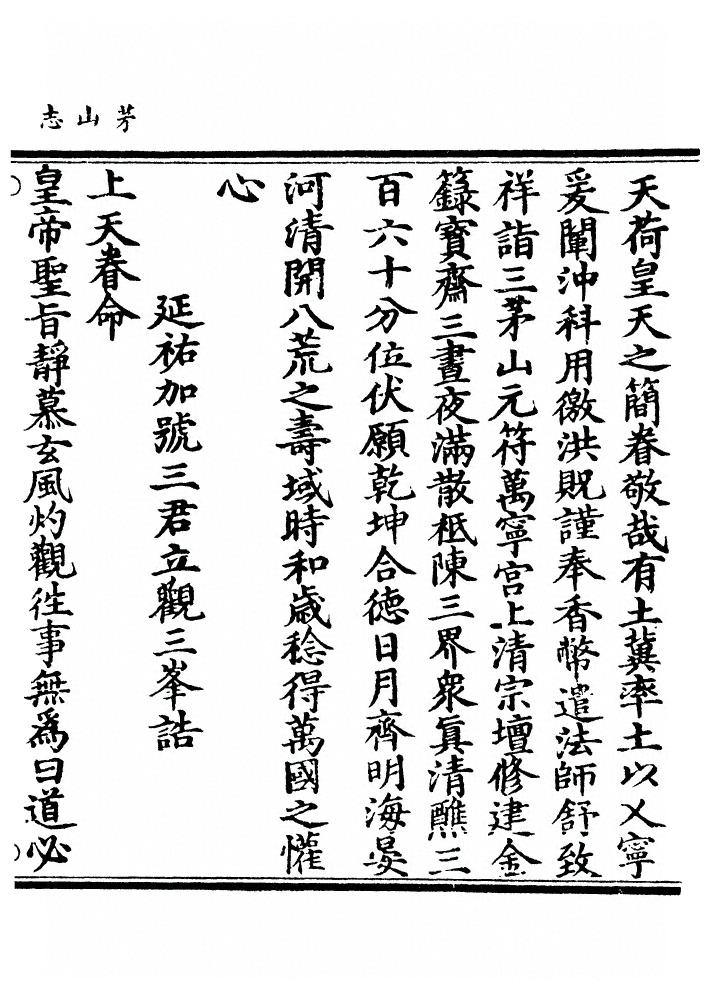 茅山志
天荷皇天之簡眷敬哉有土冀率土以乂寧
爰闡沖科用徼洪貺謹奉香幣遣法師舒致
祥詣三茅山元符萬寧宮上清宗壇修建金
籙寶齋三晝夜滿散祗陳三界衆眞清醮三
百六十分位伏願乾坤合德日月齊明海晏
河清開八荒之壽域時和歲稔得萬國之懽
心
延祐加號三君立觀三峯誥
上天眷命
皇帝聖旨靜慕玄風灼觀徃事無爲曰道必